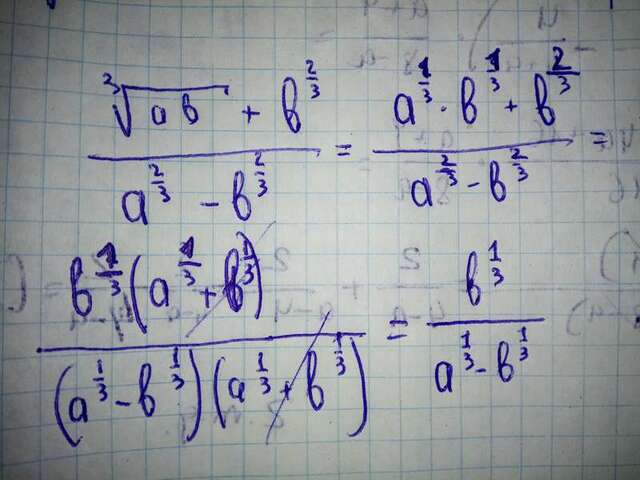 ∛ab + b^(2/3) / a^(2/3) − b^(2/3) = a^(1/3) · b^(1/3) + b^(2/3) / a^(2/3) − b^(2/3) =
b^(1/3) (a^(1/3) + b^(1/3)) / (a^(1/3) − b^(1/3)) (a^(1/3) + b^(1/3)) = b^(1/3) / a^(1/3) − b^(1/3)